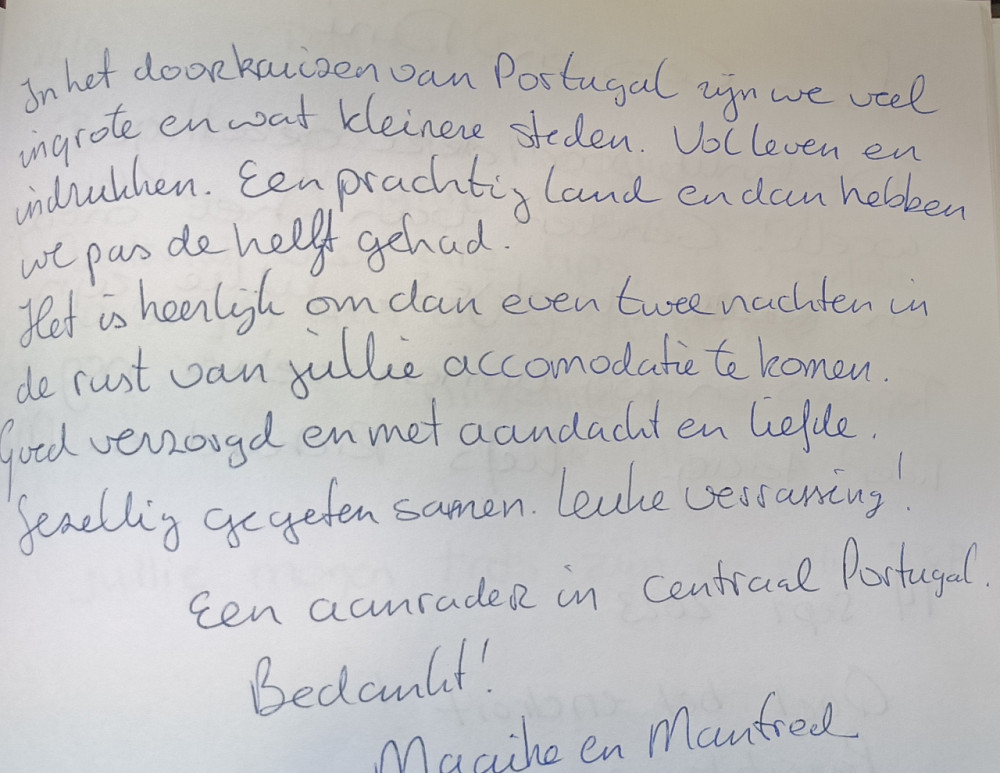 In het doorkruisen van Portugal zijn we veel
in grote en wat kleinere steden. Vol leven en
indrukken. Een prachtig land en dan hebben
we pas de helft gehad.
Het is heerlijk om dan even twee nachten in
de rust van jullie accomodatie te komen.
Goed verzorgd en met aandacht en liefde.
Gezellig gegeten samen. Leuke verrassing!
Een aanrader in centraal Portugal.
Bedankt!
Maaike en Manfred